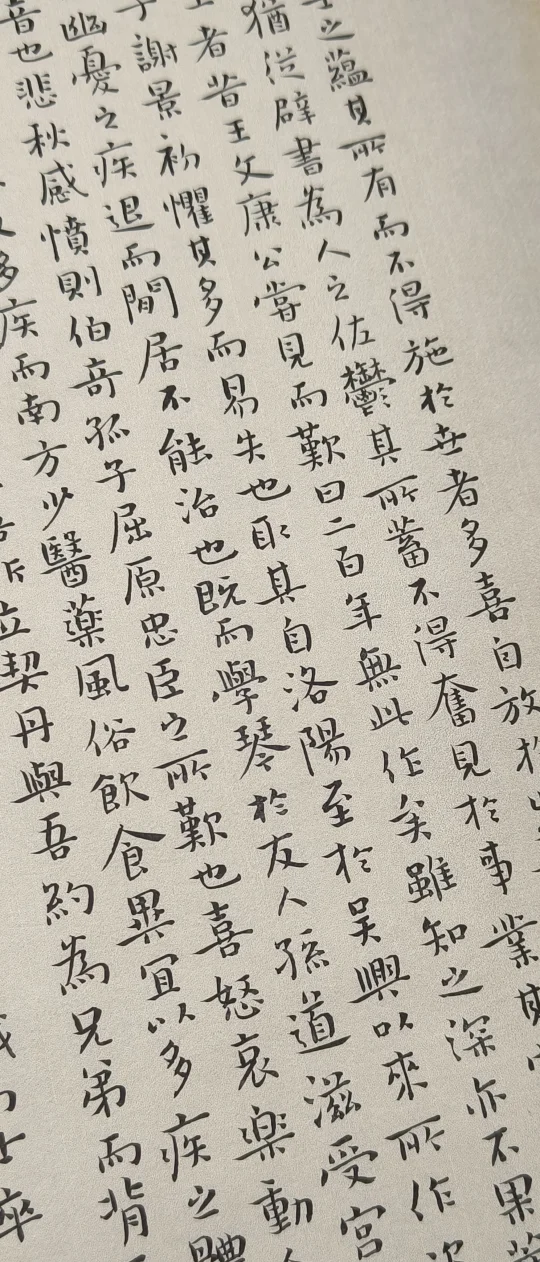 之蘊其所有而不得施於世者多喜自放於
猶從辟書為人之佐鬱其所蓄不得奮見於事業其
者昔王文康公嘗見而歎曰二百年無此作矣雖知之深亦不果薦
子謝景初懼其多而易失也取其自洛陽至於吳興以來所作次
幽憂之疾退而閒居不能治也既而學琴於友人孫道滋受宮
音也悲秋感憤則伯奇孤子屈原忠臣之所歎也喜怒哀樂動人
多疾而南方少醫藥風俗飲食異宜以多疾之體
立契丹與吾約為兄弟而背
士卒